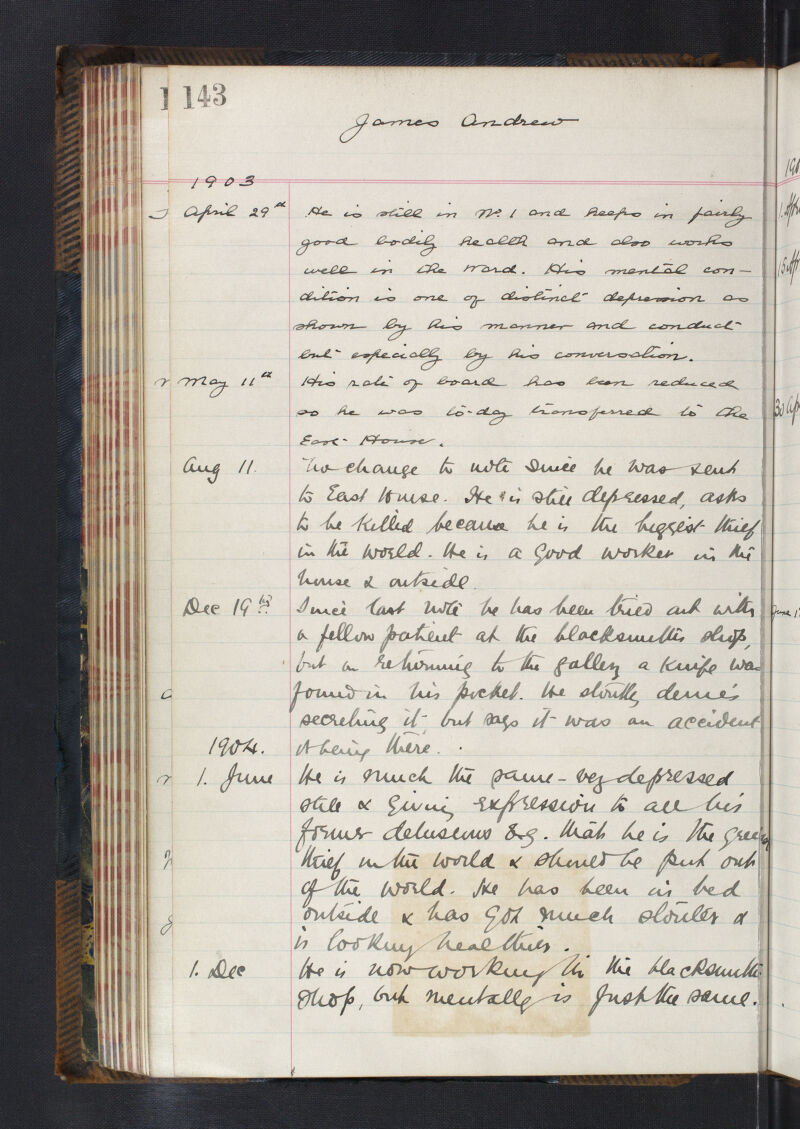 143
James Andrew
1903
April 29th He is still in No. 1 and keeps in fairly
good bodily health and also works
well in the ward. His mental con-
dition is one of distinct depression as
shown by his manner and conduct
but especially by his conversation.
May 11th His rate of board has been reduced
so he was to-day transferred to the
East House.
Aug 11. No change to note since he was sent
to East House. He is still depressed, asks
to be killed because he is the biggest thief
in the world. He is a good worker in the
house & outside.
Dec 19th Since last note he has been tried out with
a fellow patient at the blacksmiths shop,
but on returning to the gallery a knife was
found in his pocket. He stoutly denies
secreting it, but says it was an accident
1904. it being there.
1. June He is much the same - very depressed
still & giving expression to all his
former delusions e.g. that he is the
thief in the world & should be put out
of the world. He has been in bed
outside & has got much stouter &
is looking healthier.
1. Dec He is now working in the blacksmiths
shop, but mentally is just the same.